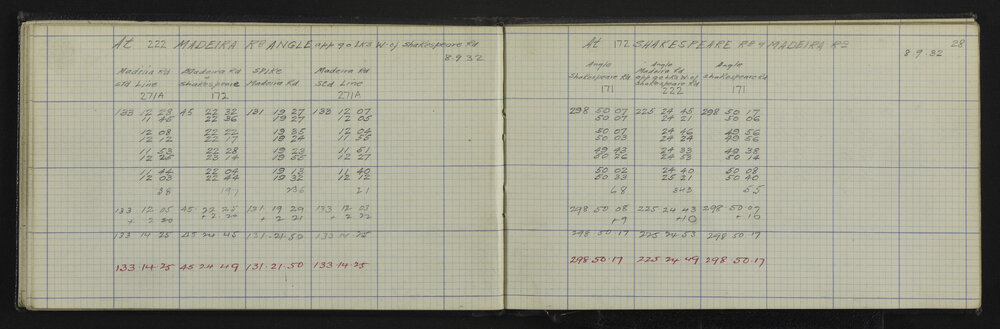 At 222 MADEIRA RD ANGLE opp 90 LKS W. of Shakespeare Rd
8.9.32
Madeira Rd Madeira Rd SPIKE Madeira Rd
Std Line Shakespeare Madeira Rd Std Line
271A 172 271A
133 12 23 45 22 32 131 19 27 133 12 07
11 45 22 36 19 27 12 05
12 08 22 22 19 35 12 04
12 12 22 17 19 24 11 55
11 53 22 28 19 23 11 51
12 25 23 14 19 55 12 27
11 44 22 04 19 13 11 40
12 03 22 44 19 32 12 12
38 197 236 21
133 12 05 45 22 25 131 19 29 133 12 03
+ 2 20 + 2 20 + 2 21 + 2 22
133 14 25 45 24 45 131.21.50 133 14.25
133.14.25 45 24 49 131.21.50 133.14.25
28
At 172 SHAKESPEARE RD & MADEIRA RD
8 9.32
Angle Angle Angle
Shakespeare Rd Madeira Rd opp 90 LKS W of Shakespeare Rd Shakespeare Rd
171 222 171
298 50 07 225 24 45 298 50 17
50 07 24 21 50 06
50 07 24 46 49 56
50 03 24 24 49 56
49 43 24 33 49 38
50 26 24 53 50 14
50 02 24 40 50 08
50 33 25 21 50 40
68 343 55
298 50 08 225 24 43 298 50 07
+9 +10 +10
298 50 17 225 24 53 298 50 17
298.50.17 225 24 49 298.50.17